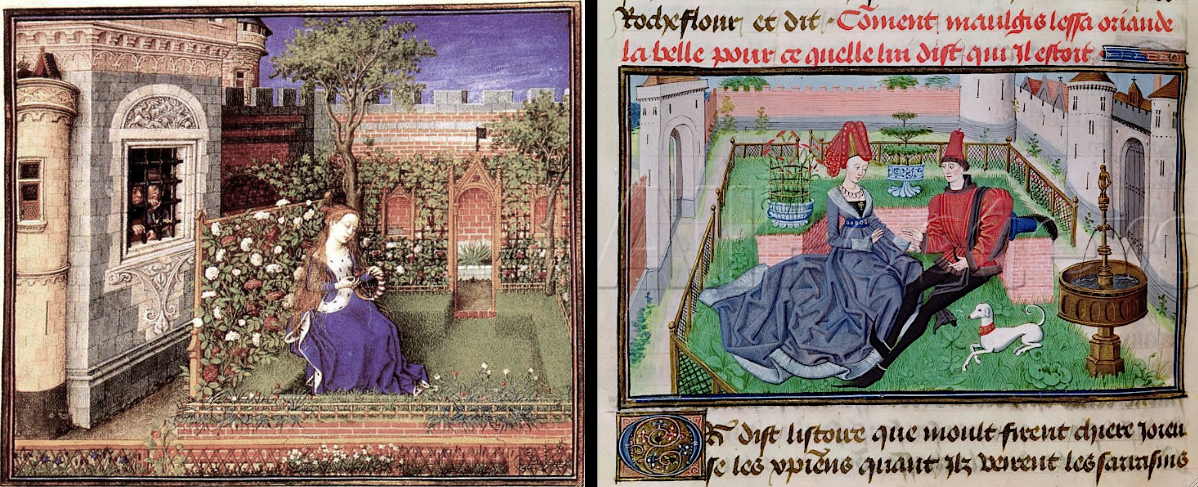 Rocheflour et dit · Cõment maulgis lessa oriande
la belle pour ce quelle lui dist qui il estoit
Or dist listoire que moult firent chiere Joieu
se les xp̃iens quant Ilz veirent les sarrasins